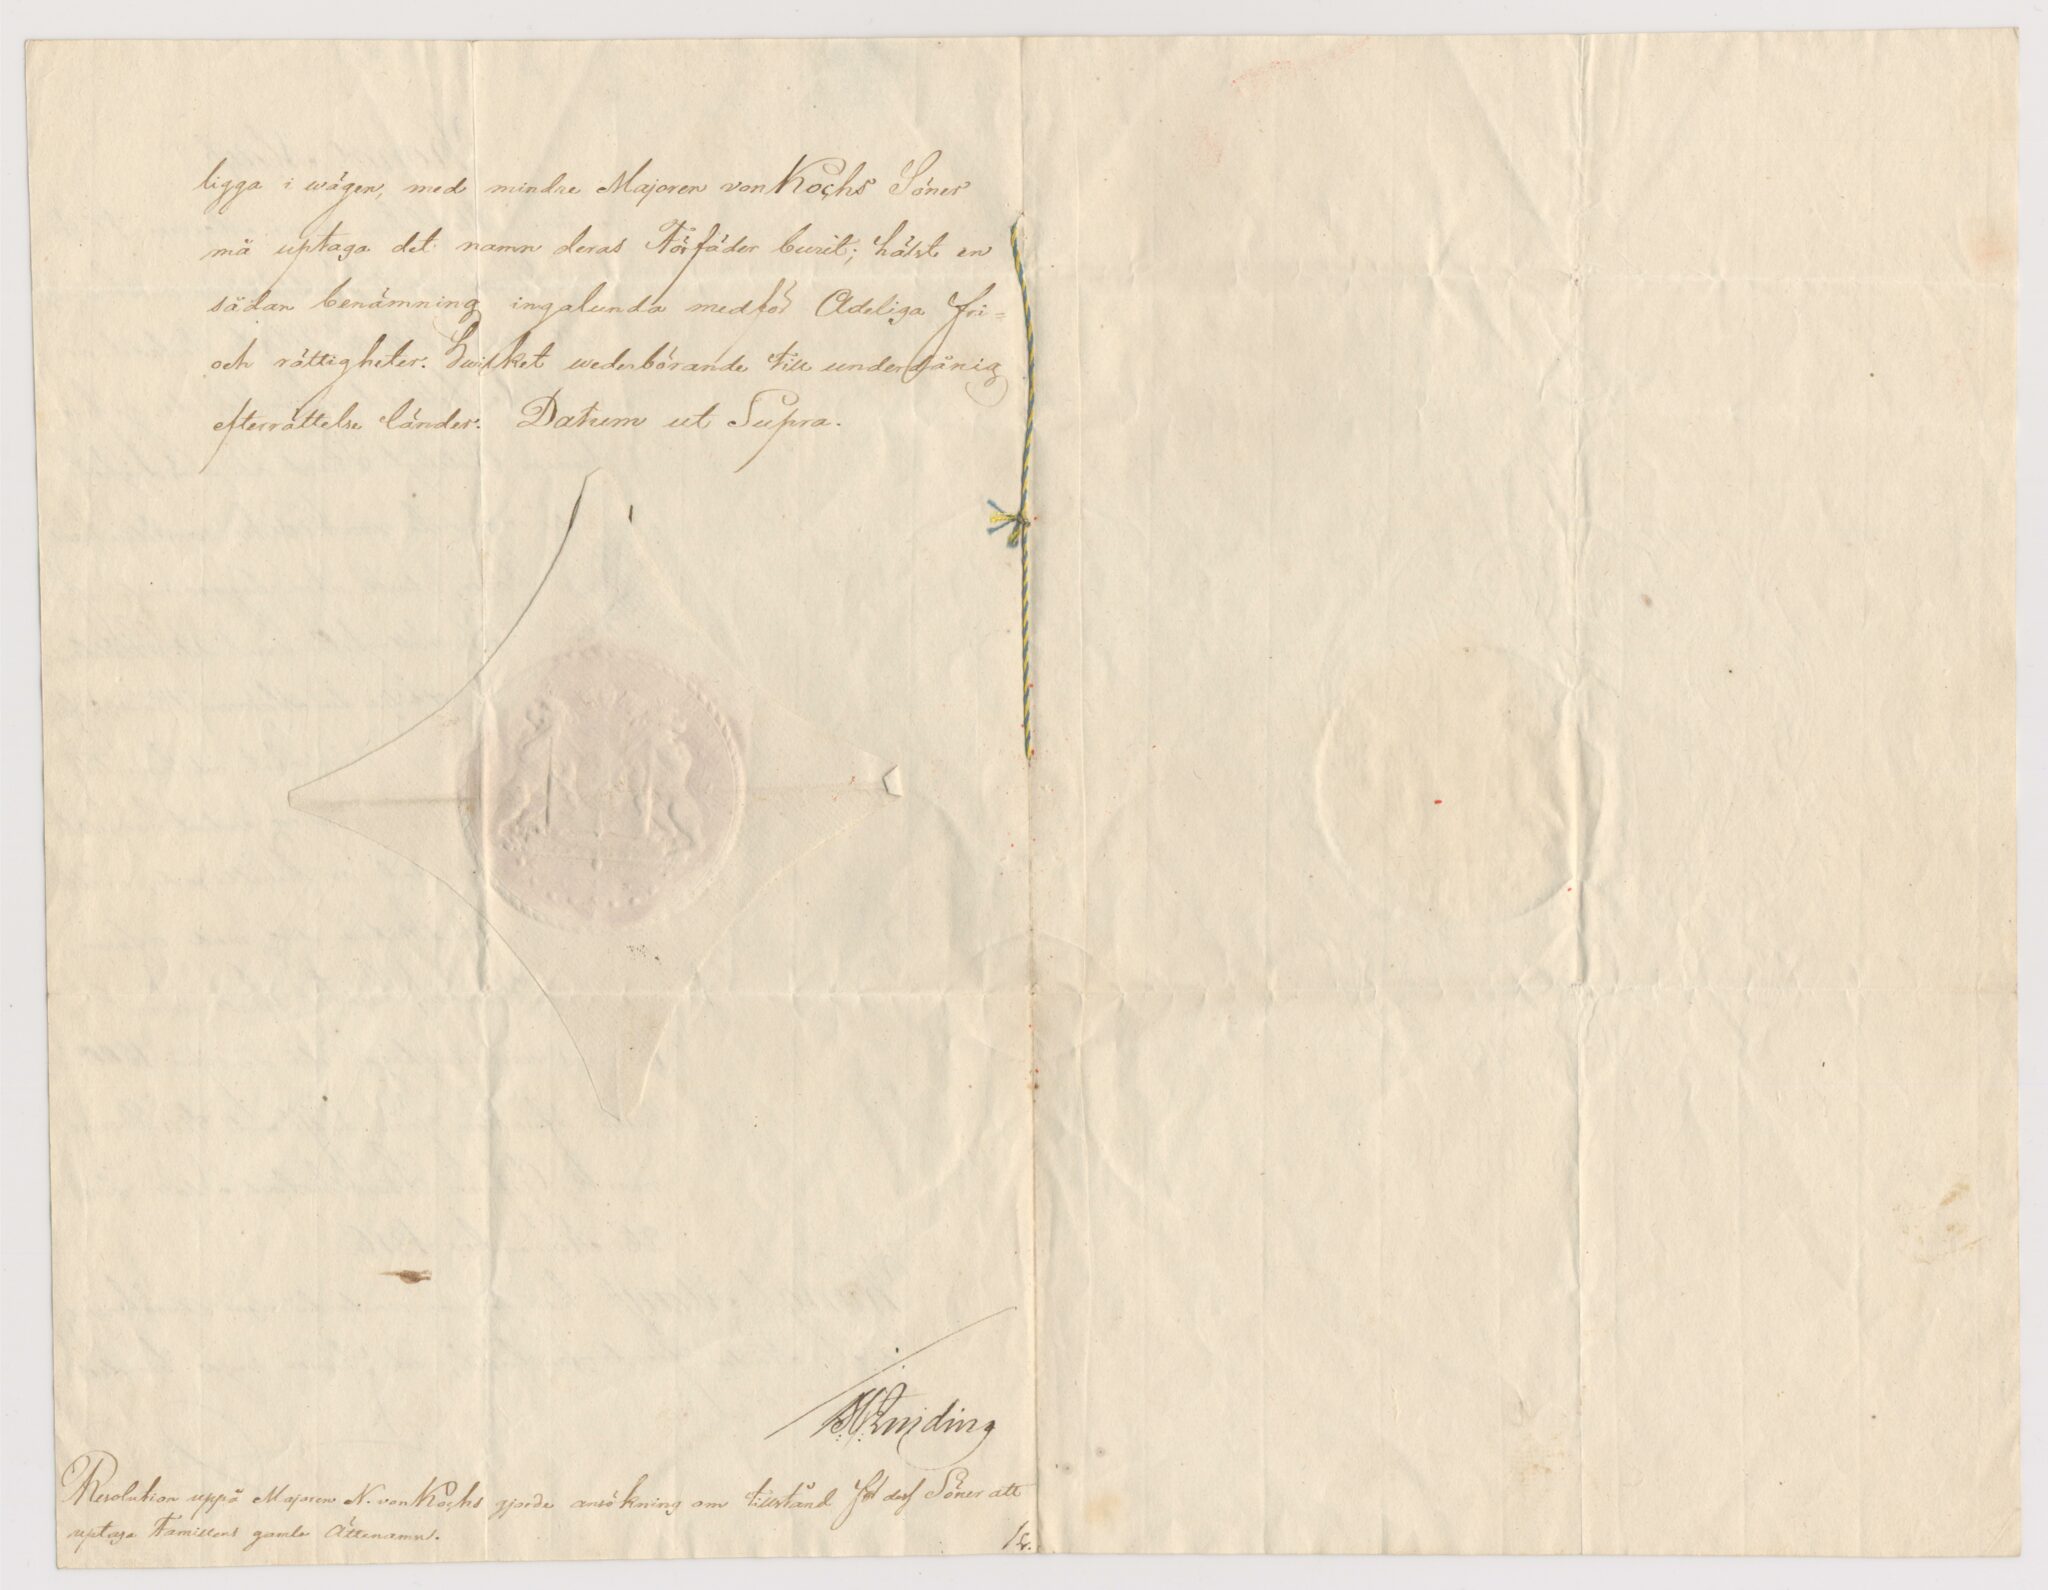 ligga i wägen, med mindre Majoren von Kochs Söner
må uptaga det namn deras Förfäder burit; hälst en
sådan benämning ingalunda medför Adeliga fri=
och rättigheter. Hwilket wederbörande till underdånig
efterrättelse länder. Datum ut Supra.
Resolution uppå Majoren N. von Kochs gjorde ansökning om tillstånd för dess Söner att
uptaga Familiens gamla Ättenamn.